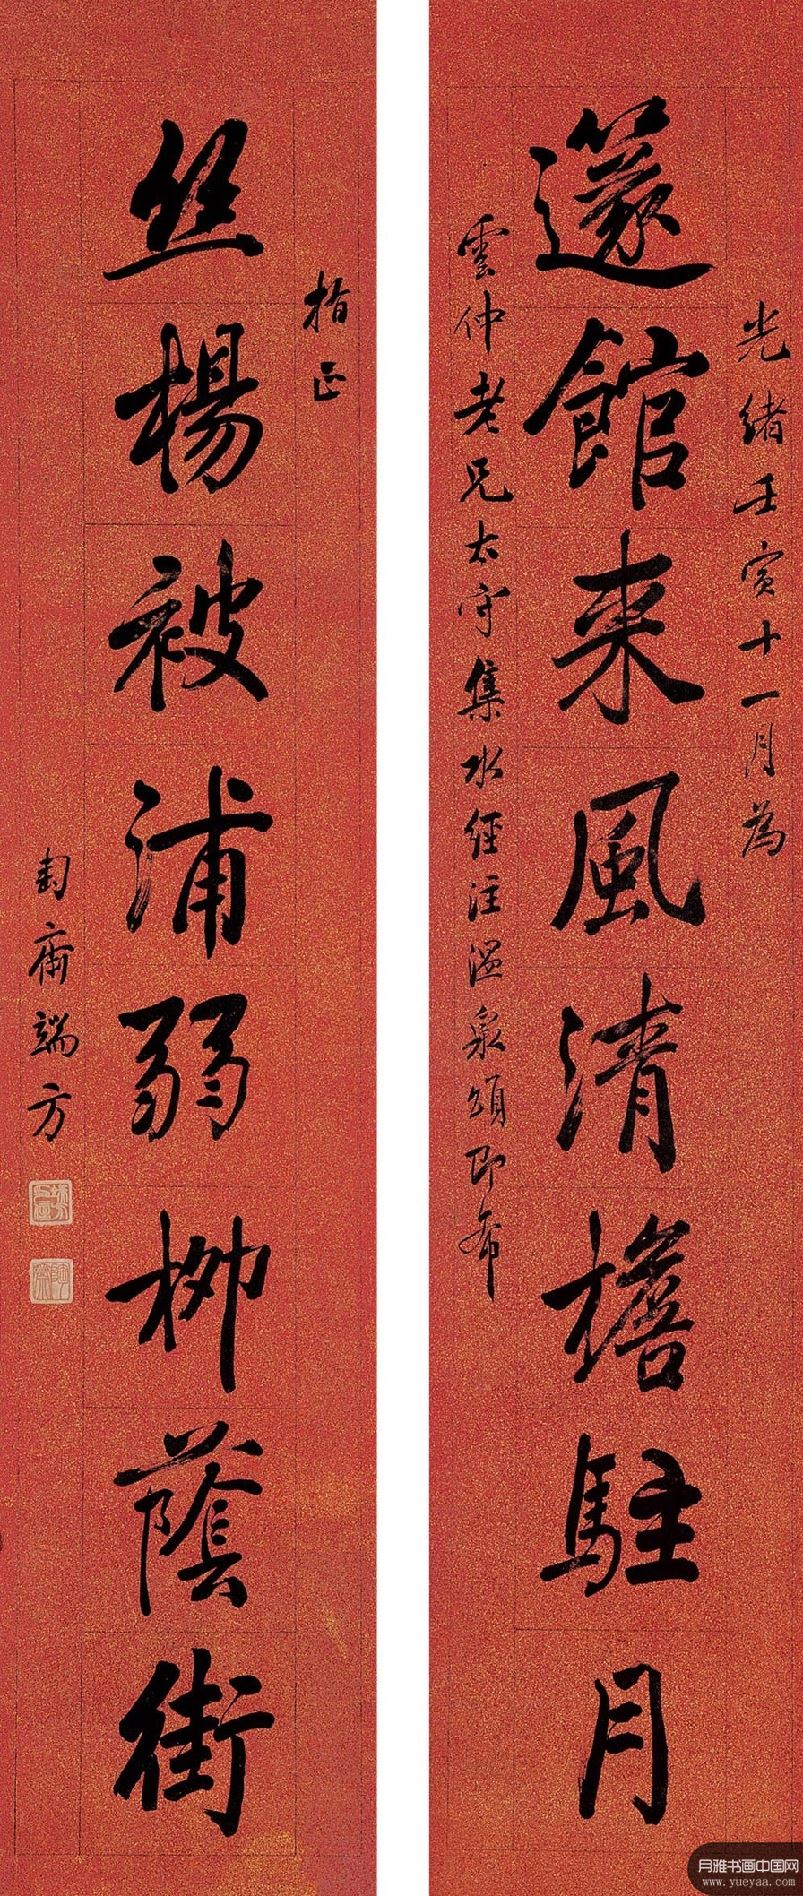 光緒壬寅十一月為
邃館來風清檐駐月
雲仲老兄太守集水經注溫泉頌即希
指正
丝楊被浦弱柳蔭街
匋齋端方
月雅书画中国网
www.yueyaa.com